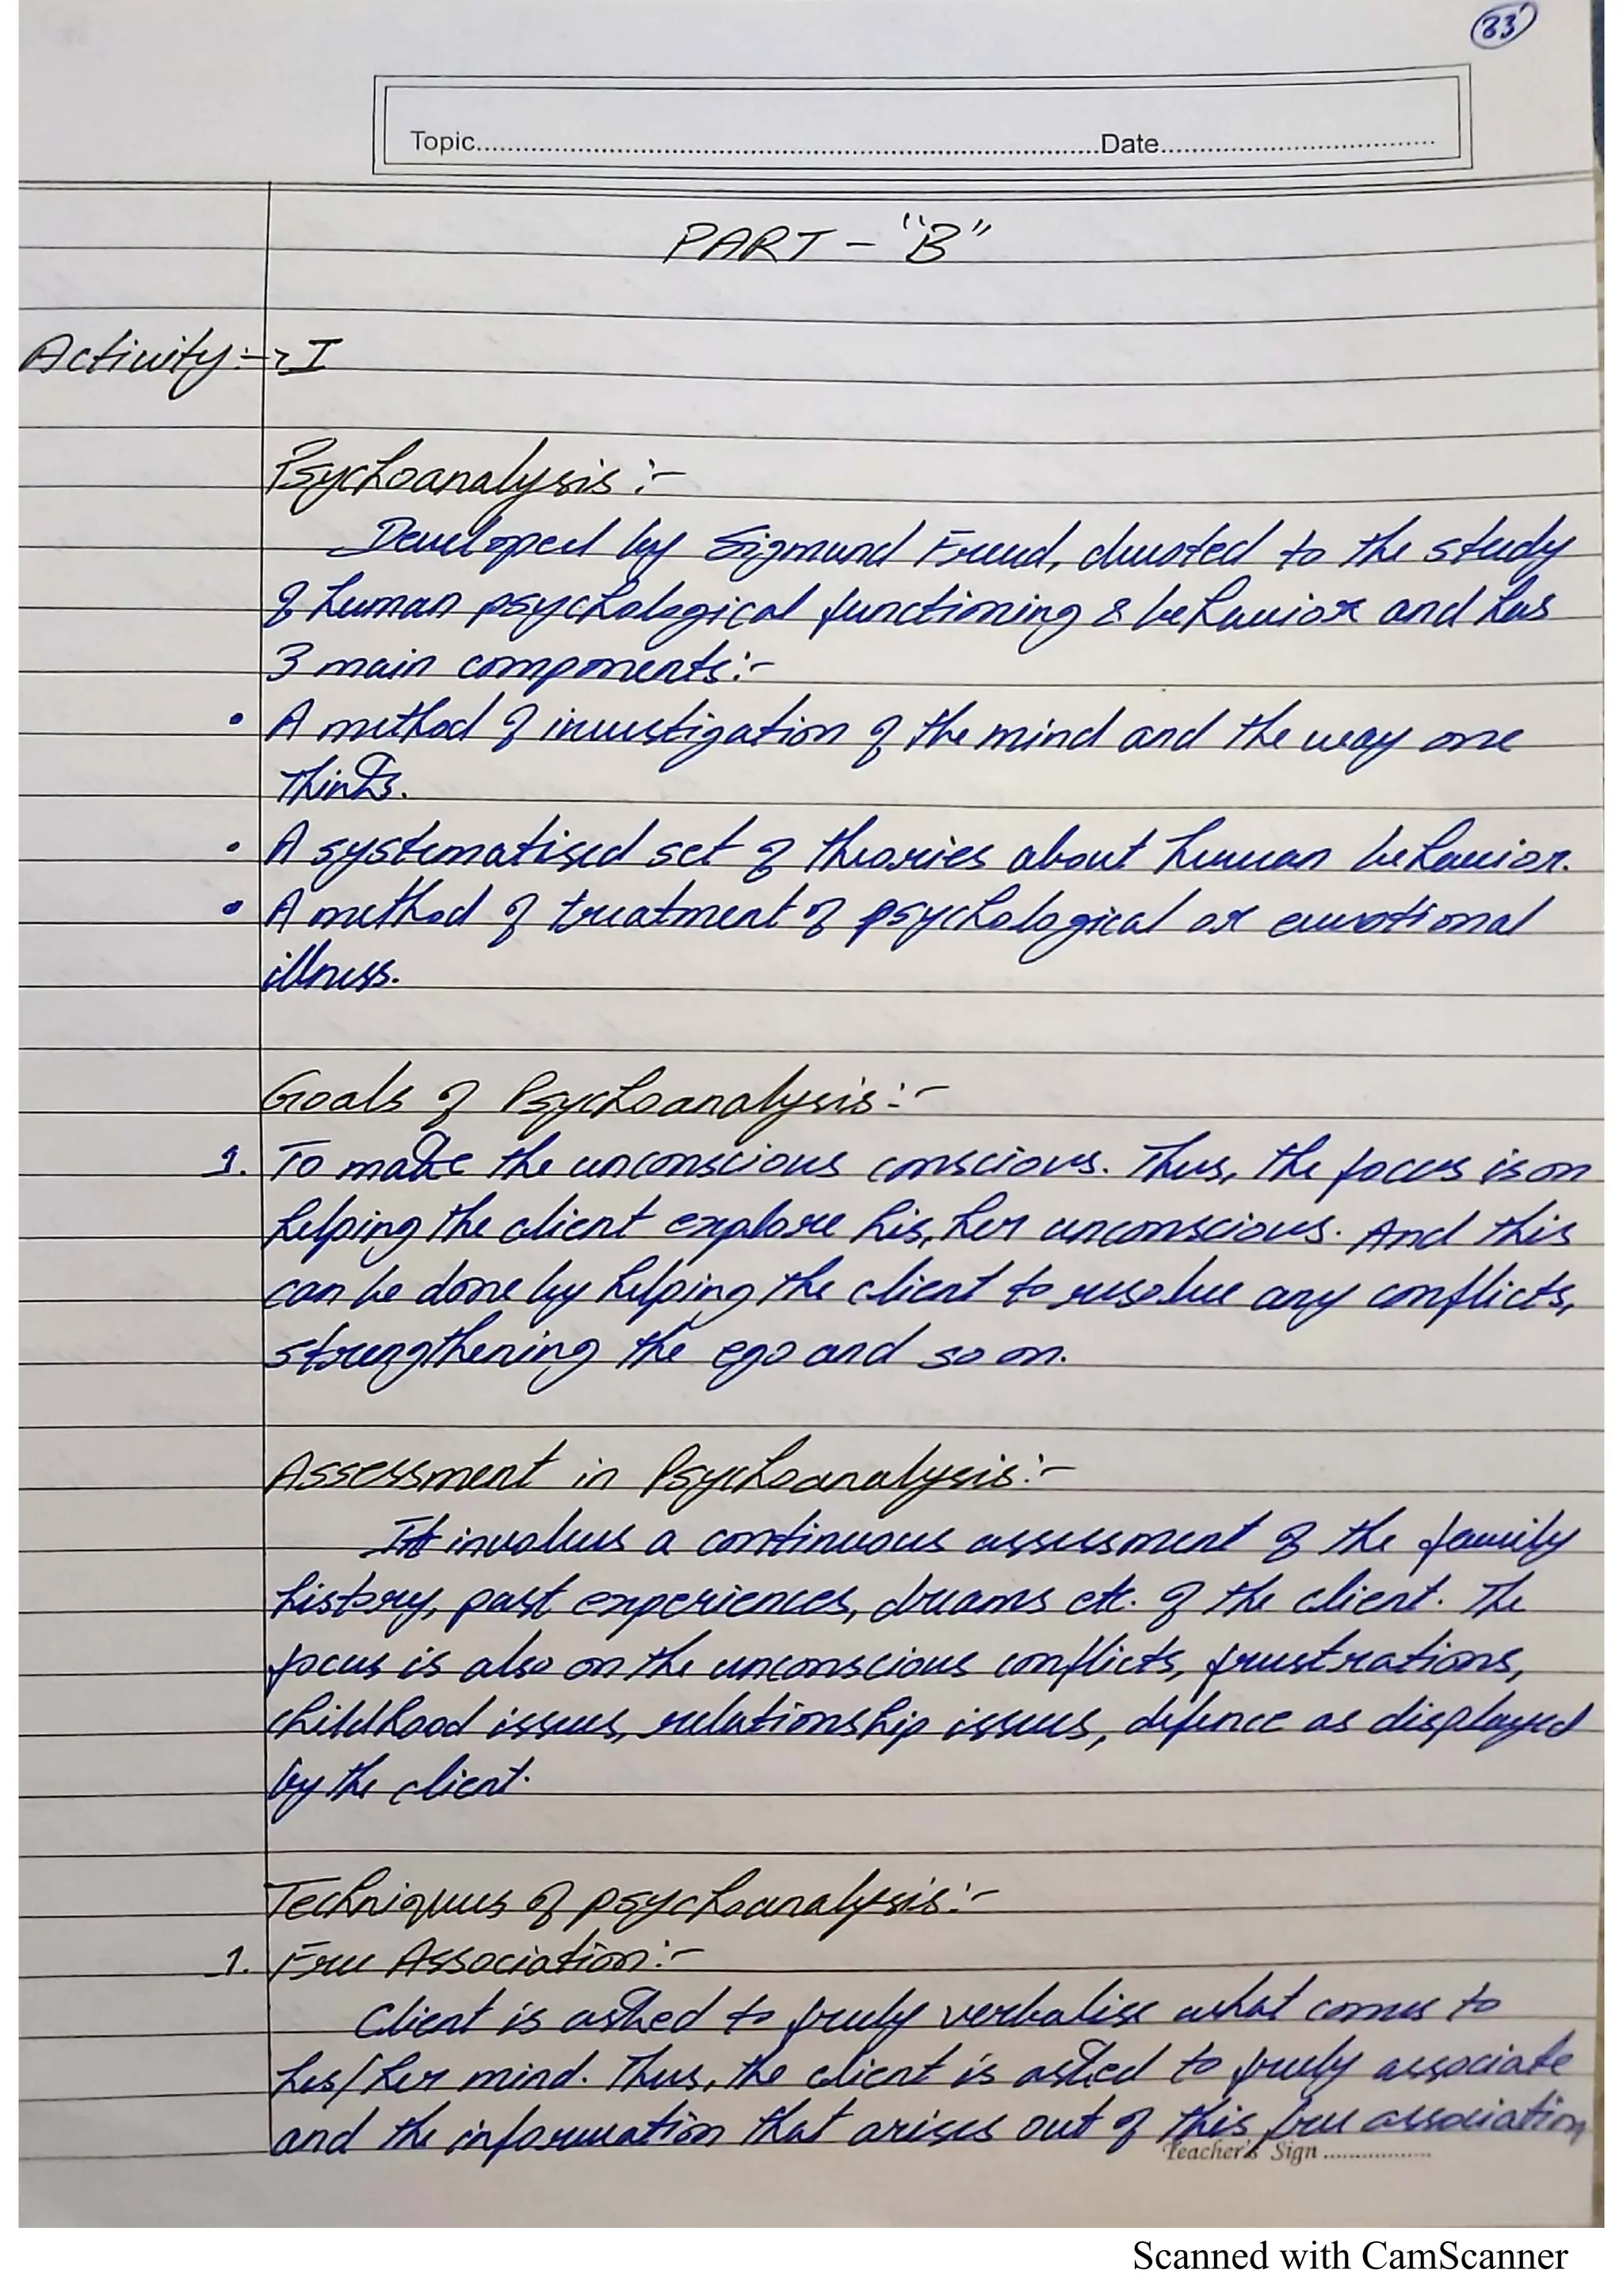 83
Topic..........Date..........
PART - "B"
Activity:-> I
Psychoanalysis:-
Developed by Sigmund Freud, devoted to the study
of human psychological functioning & behavior and has
3 main components:-
• A method of investigation of the mind and the way one
thinks.
• A systematised set of theories about human behavior.
• A method of treatment of psychological or emotional
illness.
Goals of Psychoanalysis:-
1. To make the unconscious conscious. Thus, the focus is on
helping the client explore his, her unconscious. And this
can be done by helping the client to resolve any conflicts,
strengthening the ego and so on.
Assessment in Psychoanalysis:-
It involves a continuous assessment of the family
history, past experiences, dreams etc. of the client. The
focus is also on the unconscious conflicts, frustrations,
childhood issues, relationship issues, defence as displayed
by the client.
Techniques of psychoanalysis:-
1. Free Association:-
Client is asked to freely verbalise what comes to
his/her mind. Thus, the client is asked to freely associate
and the information that arises out of this free association
Teacher's Sign ..................
Scanned with CamScanner